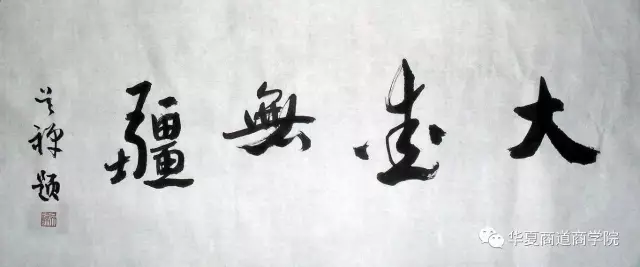 大無疆
禅题
华夏商道商学院